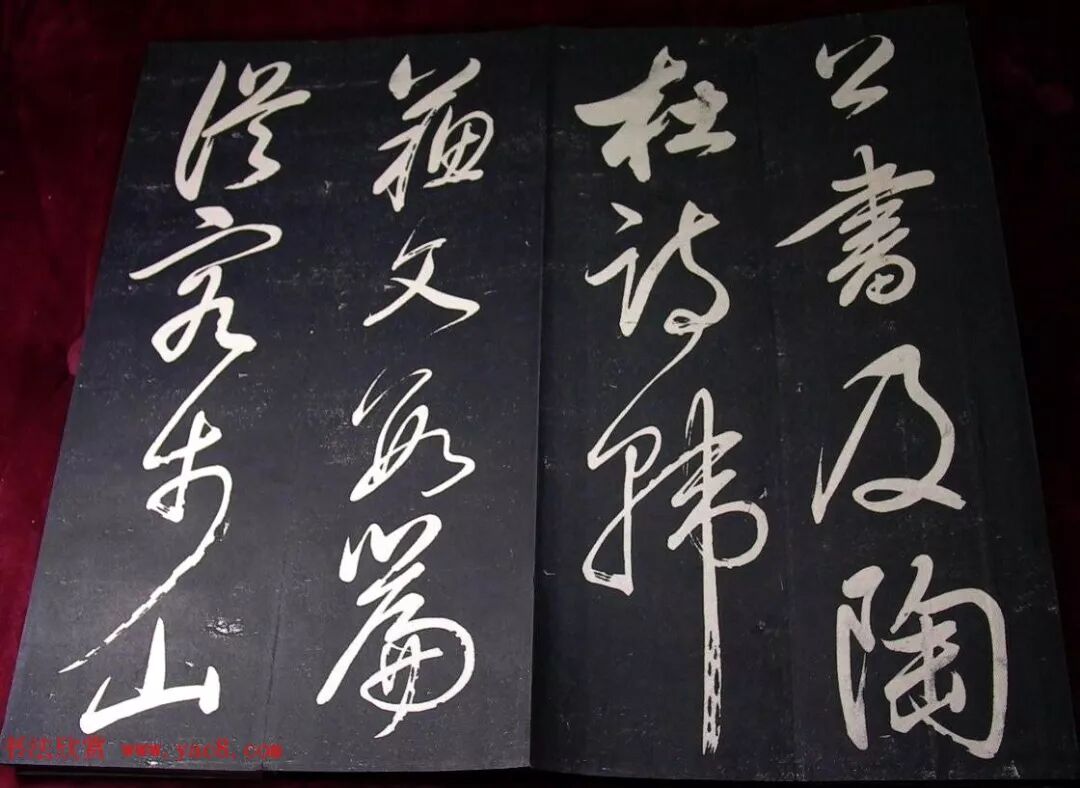 公書及陶
杜詩韓
蘇文數篇
從容步山
书法欣赏 www.yac8.com